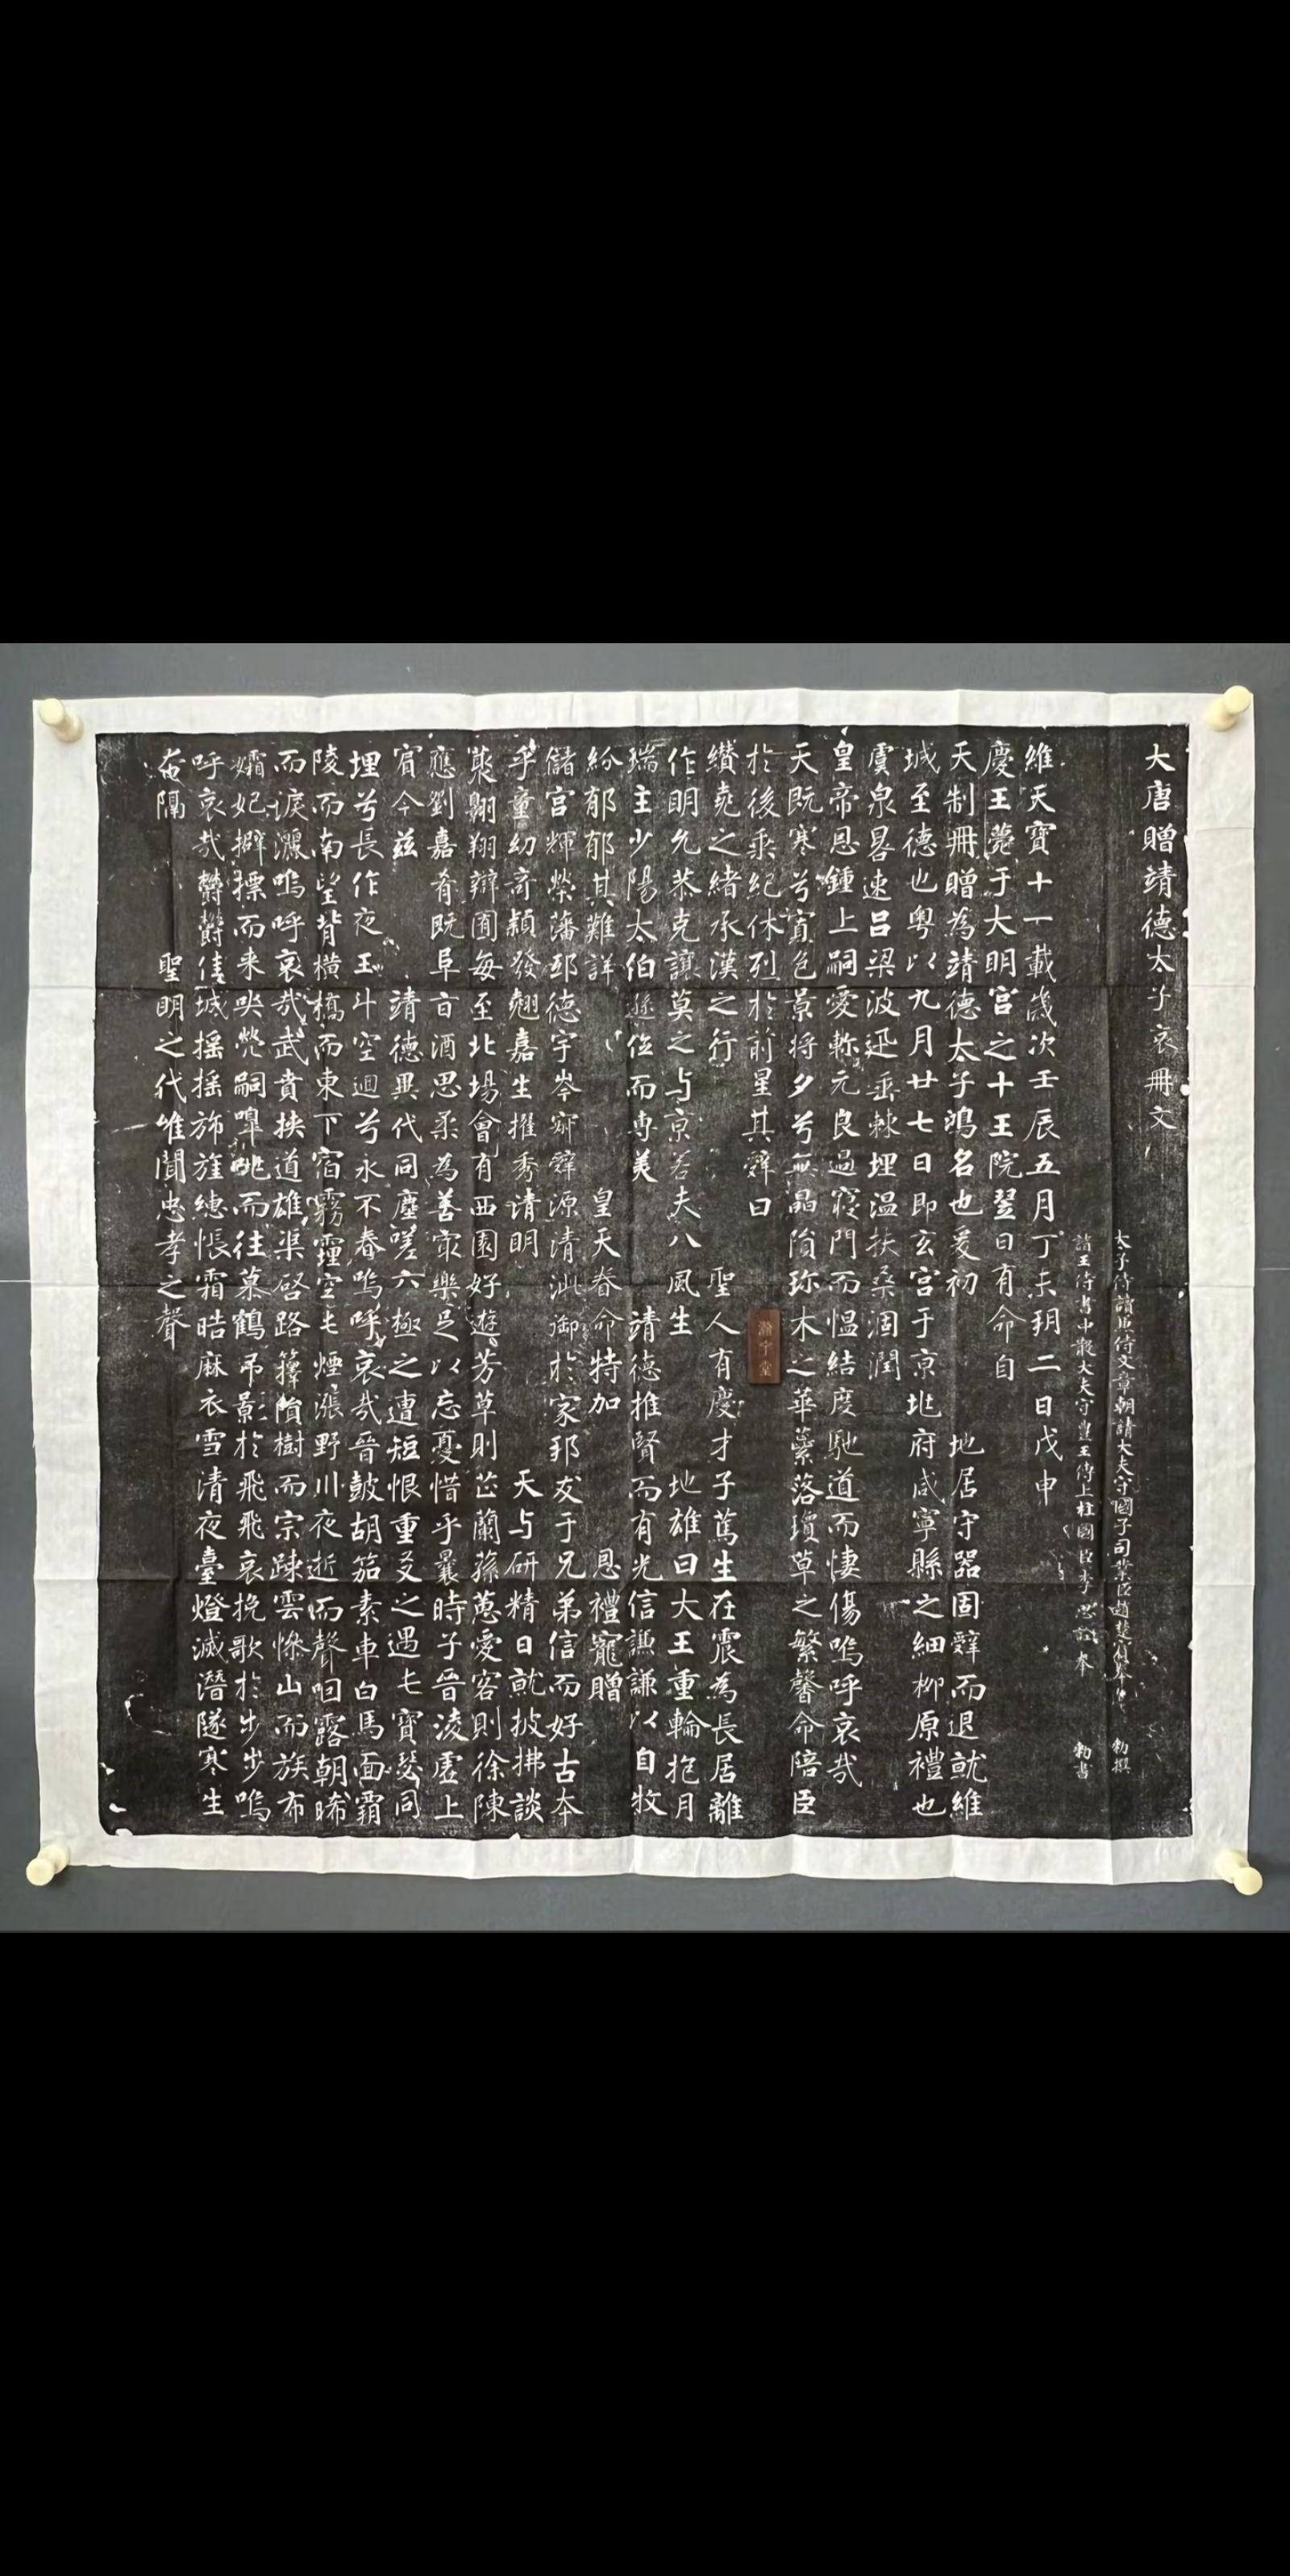 大唐贈靖德太子哀冊文
太子侍讀兼侍文章朝請大夫守國子司業臣趙楚賓奉 勅撰
諸王侍書中散大夫守豊王傅上柱國臣李思詮奉 勅書
維天寶十一載歲次壬辰五月丁未朔二日戊申
慶王薨于大明宮之十王院翌日有命自
天制冊贈為靖德太子鴻名也爰初 地居守器固辭而退就維
城至德也粵以九月廿七日即玄宮于京兆府咸寧縣之細柳原禮也
虞泉晷速呂梁波迅垂棘埋温扶桑涸潤
皇帝恩鍾上嗣愛軫元良過寢門而慍結度馳道而悽傷嗚呼哀哉
天既寒兮寘色景將夕兮無晶隕珎木之華蘂落瓊草之繁馨命陪臣
於後乘紀休烈於前星其辭曰
纘堯之緒承漢之行 聖人有慶才子篤生在震為長居離
作明允恭克讓莫之与京若夫八風生 地雄曰大王重輪抱月
瑞主少陽太伯遜位而專美 靖德推賢而有光信謙謙以自牧
紛郁郁其難詳 皇天眷命特加 恩禮寵贈
儲宮輝榮藩邸德宇岑寂辭源清泚御於家邦友于兄弟信而好古夲
乎童幼奇穎發翹嘉生擢秀請明 天与研精日就披拂談
藂翺翔辯囿每至北場會有西園好遊芳草則芷蘭蓀蕙愛客則徐陳
應劉嘉肴既阜旨酒思柔為善寂樂足以忘憂惜乎曩時子晉淩虛上
賔今茲 靖德異代同塵嗟六極之遭短恨重爻之遇七寶瑟同
埋兮長作夜玉斗空迴兮永不春嗚呼哀哉晉鼓胡笳素車白馬面霸
陵而南望背橫橋而東下宿霧霾空七煙漲野川夜逝而聲咽露朝晞
而淚灑嗚呼哀哉武賁挾道雄渠啓路籜隕樹而宗踈雲慘山而族布
孀妃擗摽而来哭煢嗣嘷咷而往慕鶴吊影於飛飛哀挽歌於步步嗚
呼哀哉欝欝佳城摇摇旆旌繐帳霜皓麻衣雪清夜臺燈滅潛隧寒生
奄隔 聖明之代唯聞忠孝之聲